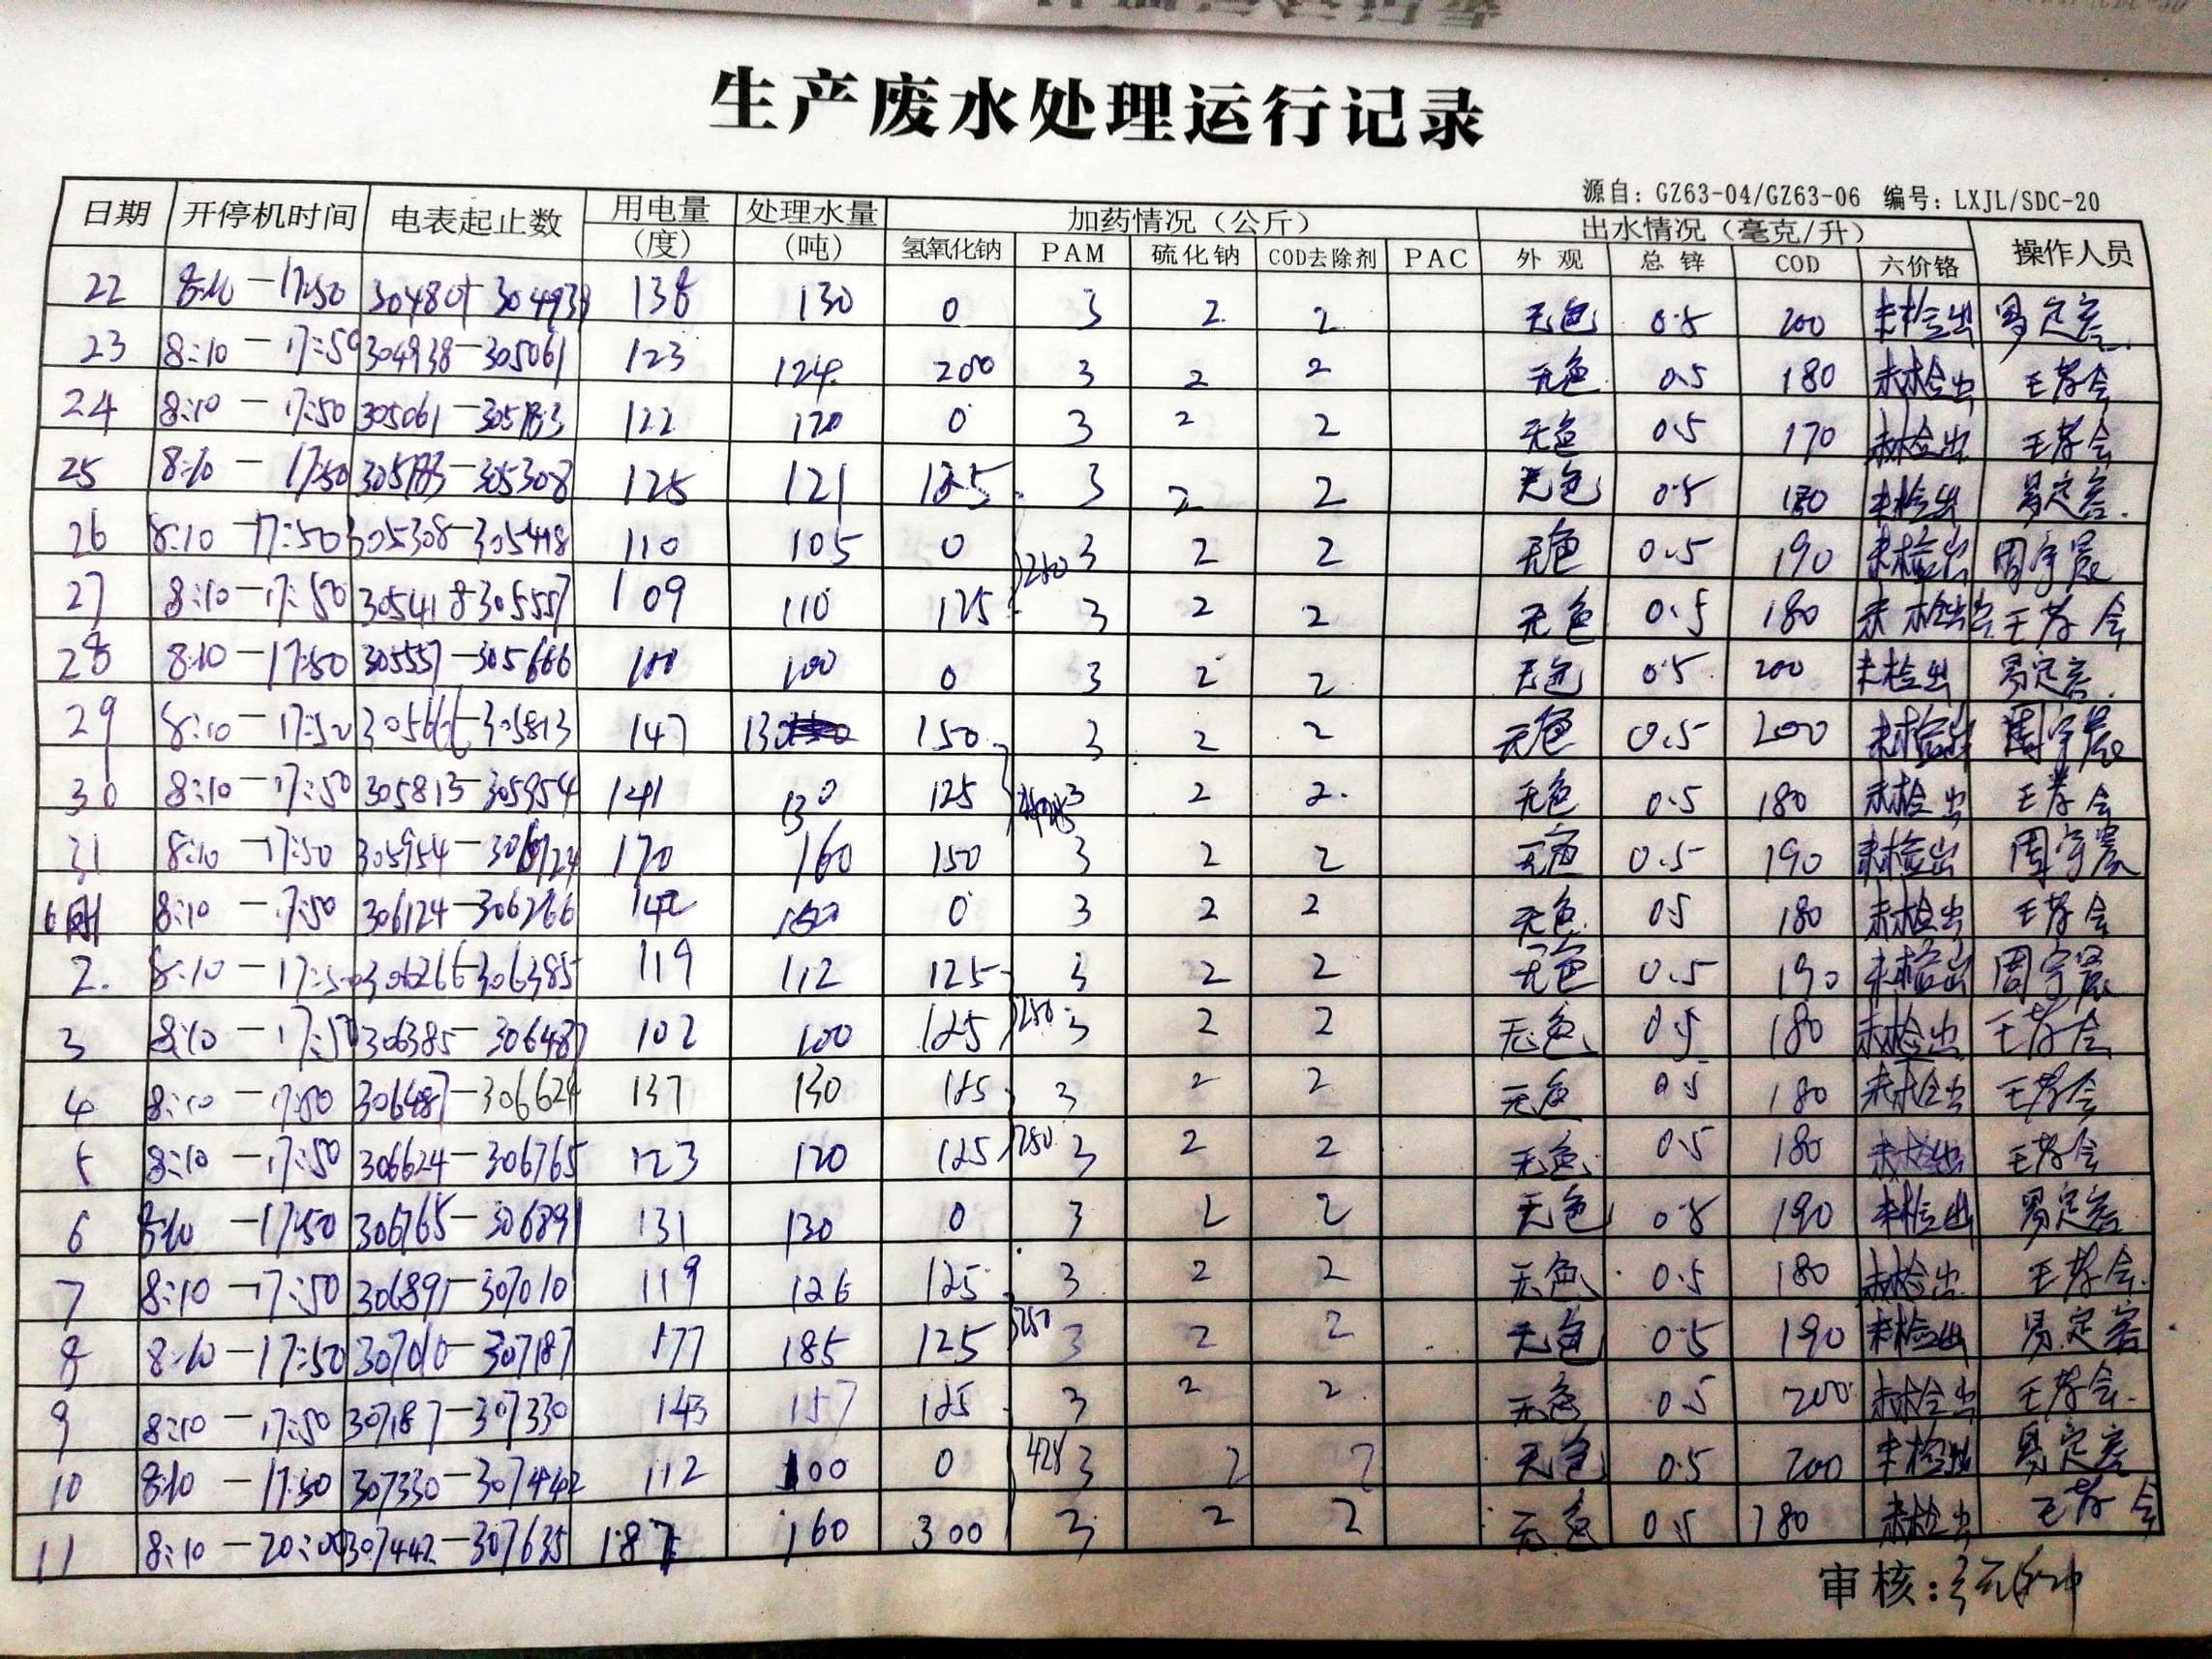 生产废水处理运行记录
源自：GZ63-04/GZ63-06 编号：LXJL/SDC-20
日期 开停机时间 电表起止数 用电量（度） 处理水量（吨） 加药情况（公斤） 出水情况（毫克/升） 操作人员
氢氧化钠 PAM 硫化钠 COD去除剂 PAC 外观 总锌 COD 六价铬
22 8:10-17:50 138 130 0 3 2 2 无色 0.5 200 未检出
23 8:10-17:50 304938-305061 123 124 200 3 2 2 无色 0.5 180 未检出
24 8:10-17:50 305061-305183 122 120 0 3 2 2 无色 0.5 170 未检出
25 8:10-17:50 305183-305308 125 121 125 3 2 2 无色 0.5 未检出
26 8:10-17:50 305308-305418 110 105 0 3 2 2 无色 0.5 190 未检出
27 8:10-17:50 305418-305557 109 110 125 250 3 2 2 无色 0.5 180 未检出
28 8:10-17:50 305557-305666 100 100 0 3 2 2 无色 0.5 200 未检出
29 8:10-17:50 305666-305813 147 130 150 3 2 2 无色 0.5 200 未检出
30 8:10-17:50 305813-305954 141 130 125 3 2 2 无色 0.5 180 未检出
31 8:10-17:50 305954-306124 170 160 150 3 2 2 无色 0.5 190 未检出
8:10-17:50 306124-306266 142 0 3 2 2 无色 0.5 180 未检出
2. 8:10-17:50 306266-306385 119 112 125 3 2 2 无色 0.5 190 未检出
3 8:10-17:50 306385-306487 102 100 125 250 3 2 2 无色 0.5 180 未检出
4 8:10-17:50 306487-306624 137 130 125 3 2 2 无色 0.5 180 未检出
5 8:10-17:50 306624-306765 123 120 125 250 3 2 2 无色 0.5 180 未检出
6 8:10-17:50 306765-306891 131 130 0 3 2 2 无色 0.5 190 未检出
7 8:10-17:50 306891-307010 119 126 125 3 2 2 无色 0.5 180 未检出
8 8:10-17:50 307010-307187 177 185 125 250 3 2 2 无色 0.5 190 未检出
9 8:10-17:50 307187-307330 143 157 125 3 2 2 无色 0.5 200 未检出
10 8:10-17:50 307330-307442 112 100 0 3 2 2 无色 0.5 200 未检出
11 8:10-20:00 307442-307635 187 160 300 3 2 2 无色 0.5 180 未检出
审核：